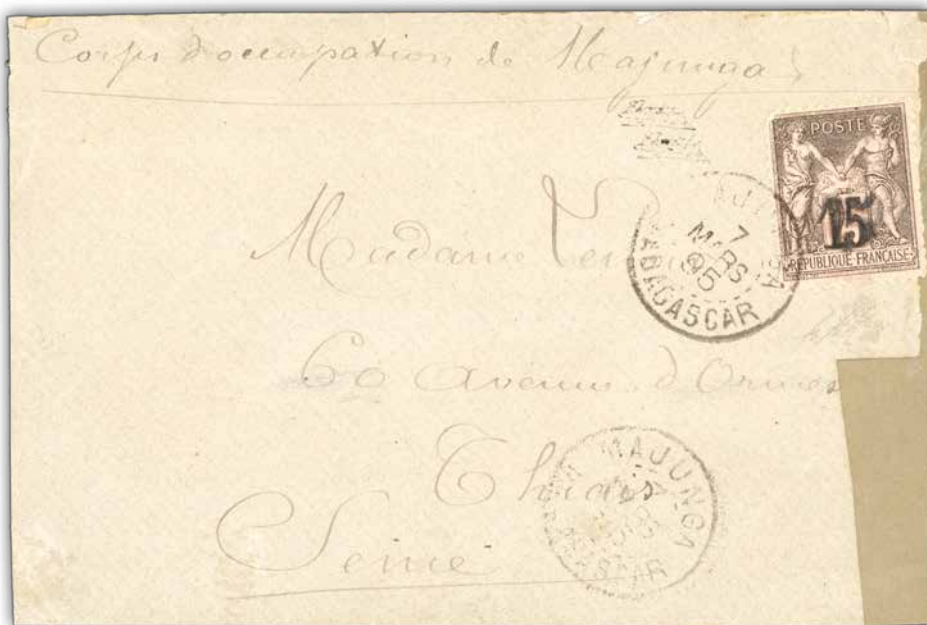 Corps d'occupation de Majunga
POSTE
15
RÉPUBLIQUE FRANÇAISE
7
MARS
95
MADAGASCAR
Madame
60 Avenue d'Ormes
Thiais
Seine
MAJUNGA